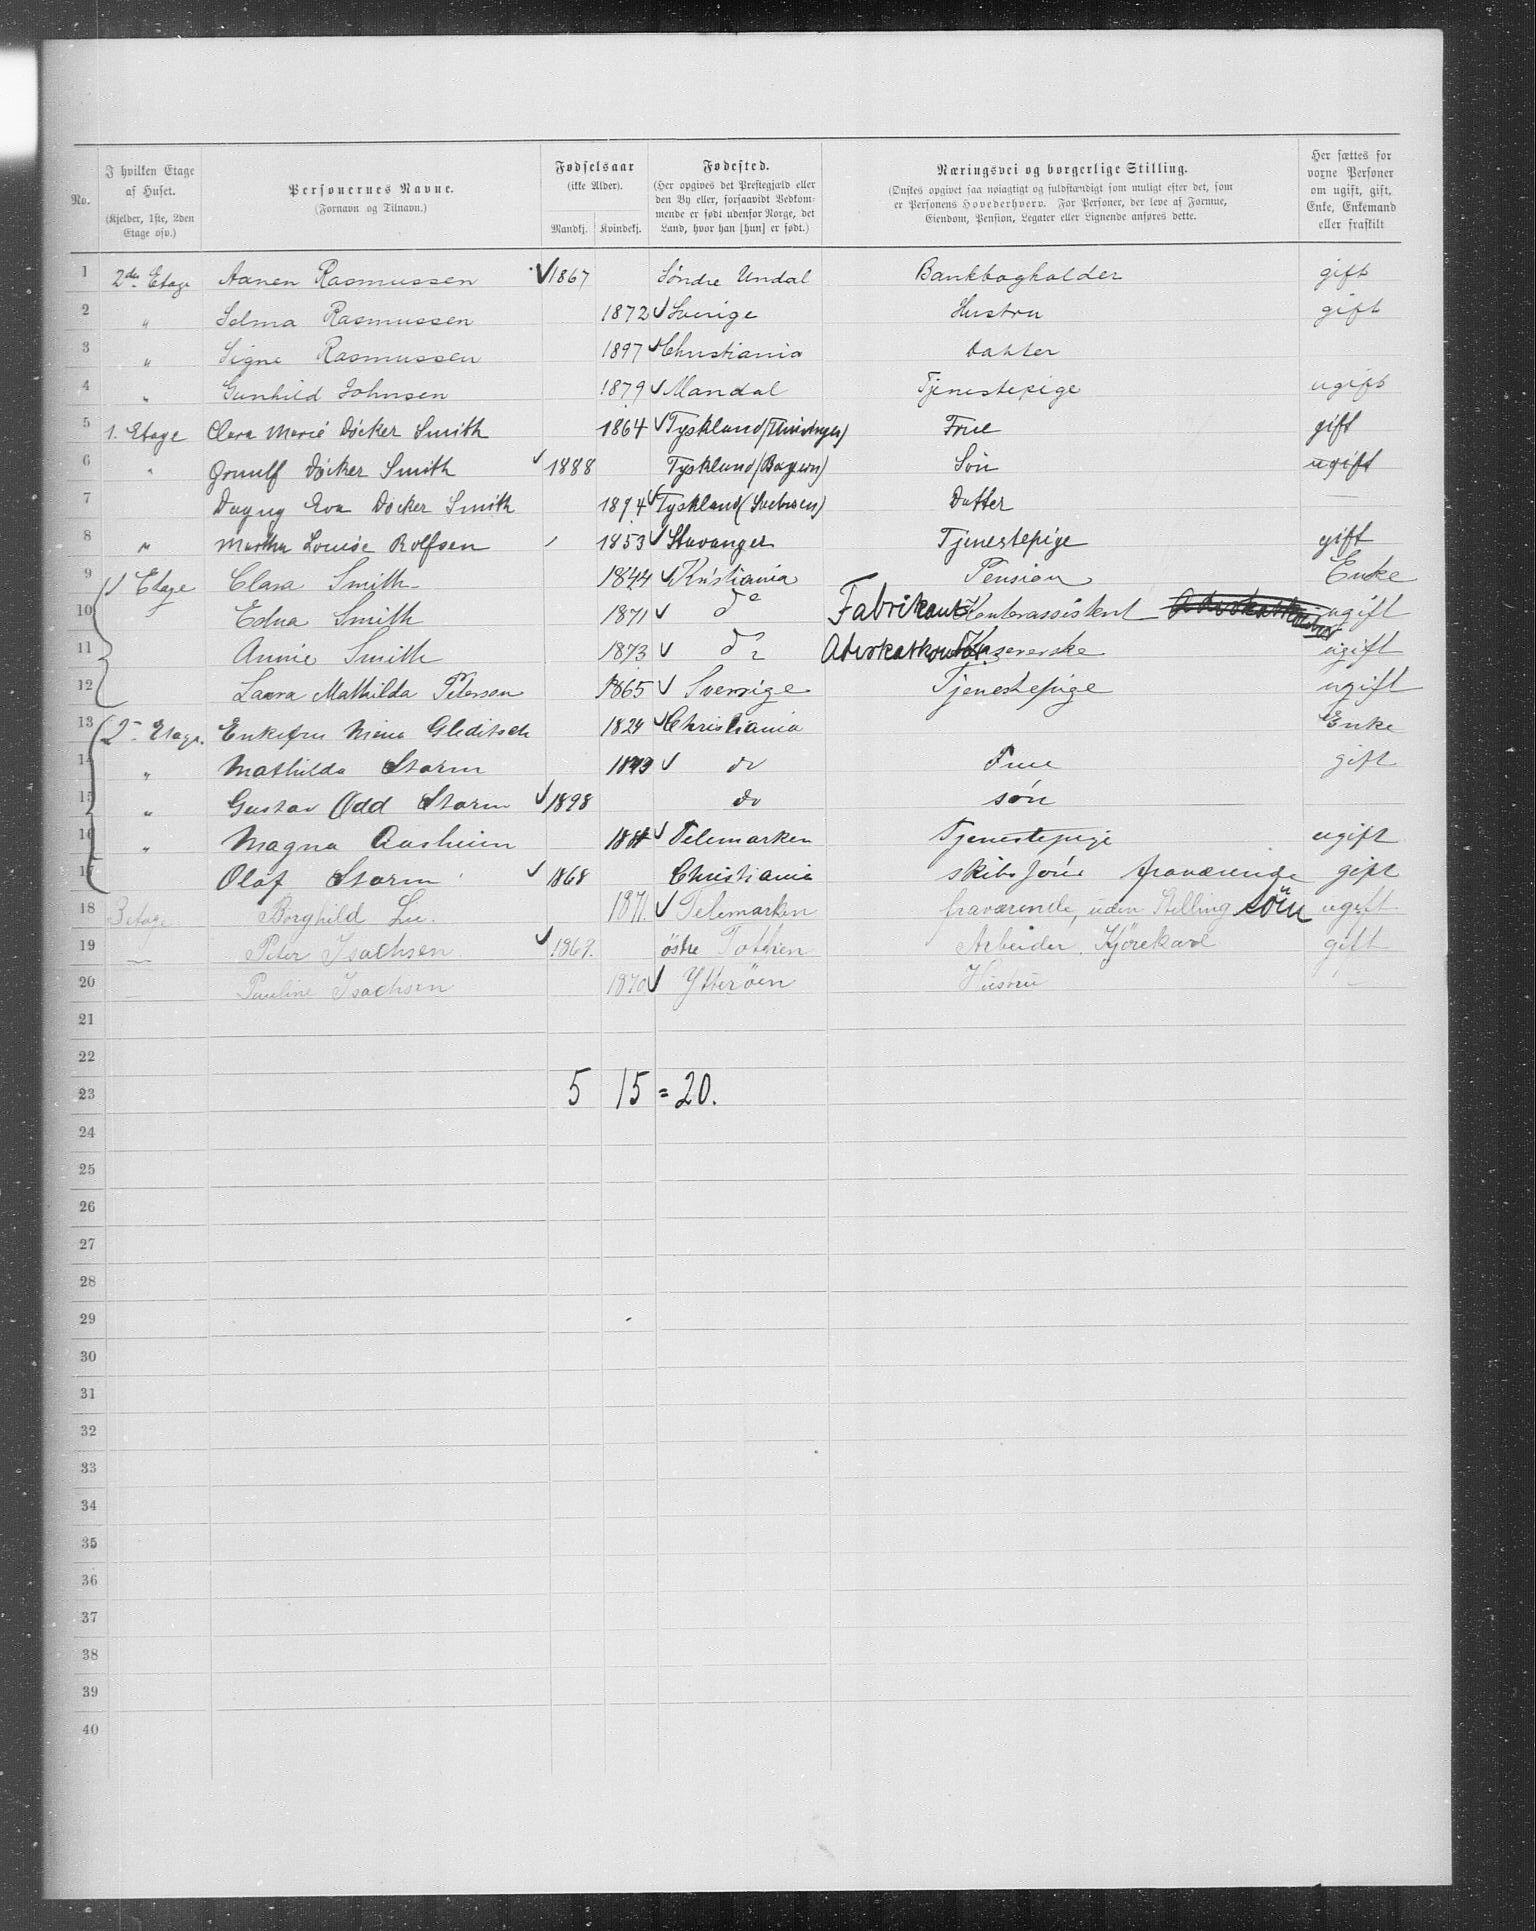 No. I hvilken Etage af Huset. (Kjelder, 1ste, 2den Etage osv.) Personernes Navne. (Fornavn og Tilnavn.) Fødselsaar (ikke Alder). Mandkj. Kvindekj. Fødested. (Her opgives det Prestegjæld eller den By eller, forsaavidt Vedkommende er født udenfor Norge, det Land, hvor han [hun] er født.) Næringsvei og borgerlige Stilling. (Ønskes opgivet saa nøiagtigt og fuldstændigt som muligt efter det, som er Personens Hovederhverv. For Personer, der leve af Formue, Eiendom, Pension, Legater eller Lignende anføres dette.) Her sættes for voxne Personer om ugift, gift, Enke, Enkemand eller fraskilt
1 2den Etage Aanen Rasmussen 1867 Søndre Undal Bankbogholder gift
2 " Selma Rasmussen 1872 Sverige Hustru gift
3 " Signe Rasmussen 1897 Christiania Datter
4 " Gunhild Johnsen 1879 Mandal Tjenestepige ugift
5 1. Etage Clara Marie Döcker Smith 1864 Tyskland (Thüringen) Frue gift
6 " Ornulf Döcker Smith 1888 Tyskland (Bayern) Sön ugift
7 Dagny Eva Döcker Smith 1894 Tyskland (Sachsen) Datter —
8 " Martha Louise Rolfsen 1853 Stavanger Tjenestepige gift
9 1 Etage Clara Smith 1844 Kristiania Pension Enke
10 Edna Smith 1871 do Fabrikant Kontorassistent ugift
11 Annie Smith 1873 do Kassererske ugift
12 Laura Mathilda Peterson 1865 Sverige Tjenestepige ugift
13 2 Etage. Enkefru Nina Gleditsch 1824 Christiania Enke
14 " Mathilda Storm 1873 do Frue gift
15 " Gustav Odd Storm 1898 do søn
16 " Magna Aasheim Telemarken Tjenestepige ugift
17 Olaf Storm 1868 Christiania fraværende gift
18 3 etage Borghild Lie. 1871. Telemarken fraværende, uden Stilling ugift
19 — Peter Isachsen. 1867. østre Tothen Arbeider, Kjørekarl gift
20 — Pauline Isachsen 1870 Ytterøen Hustru —
21
22
23 5 15 = 20.
24
25
26
27
28
29
30
31
32
33
34
35
36
37
38
39
40